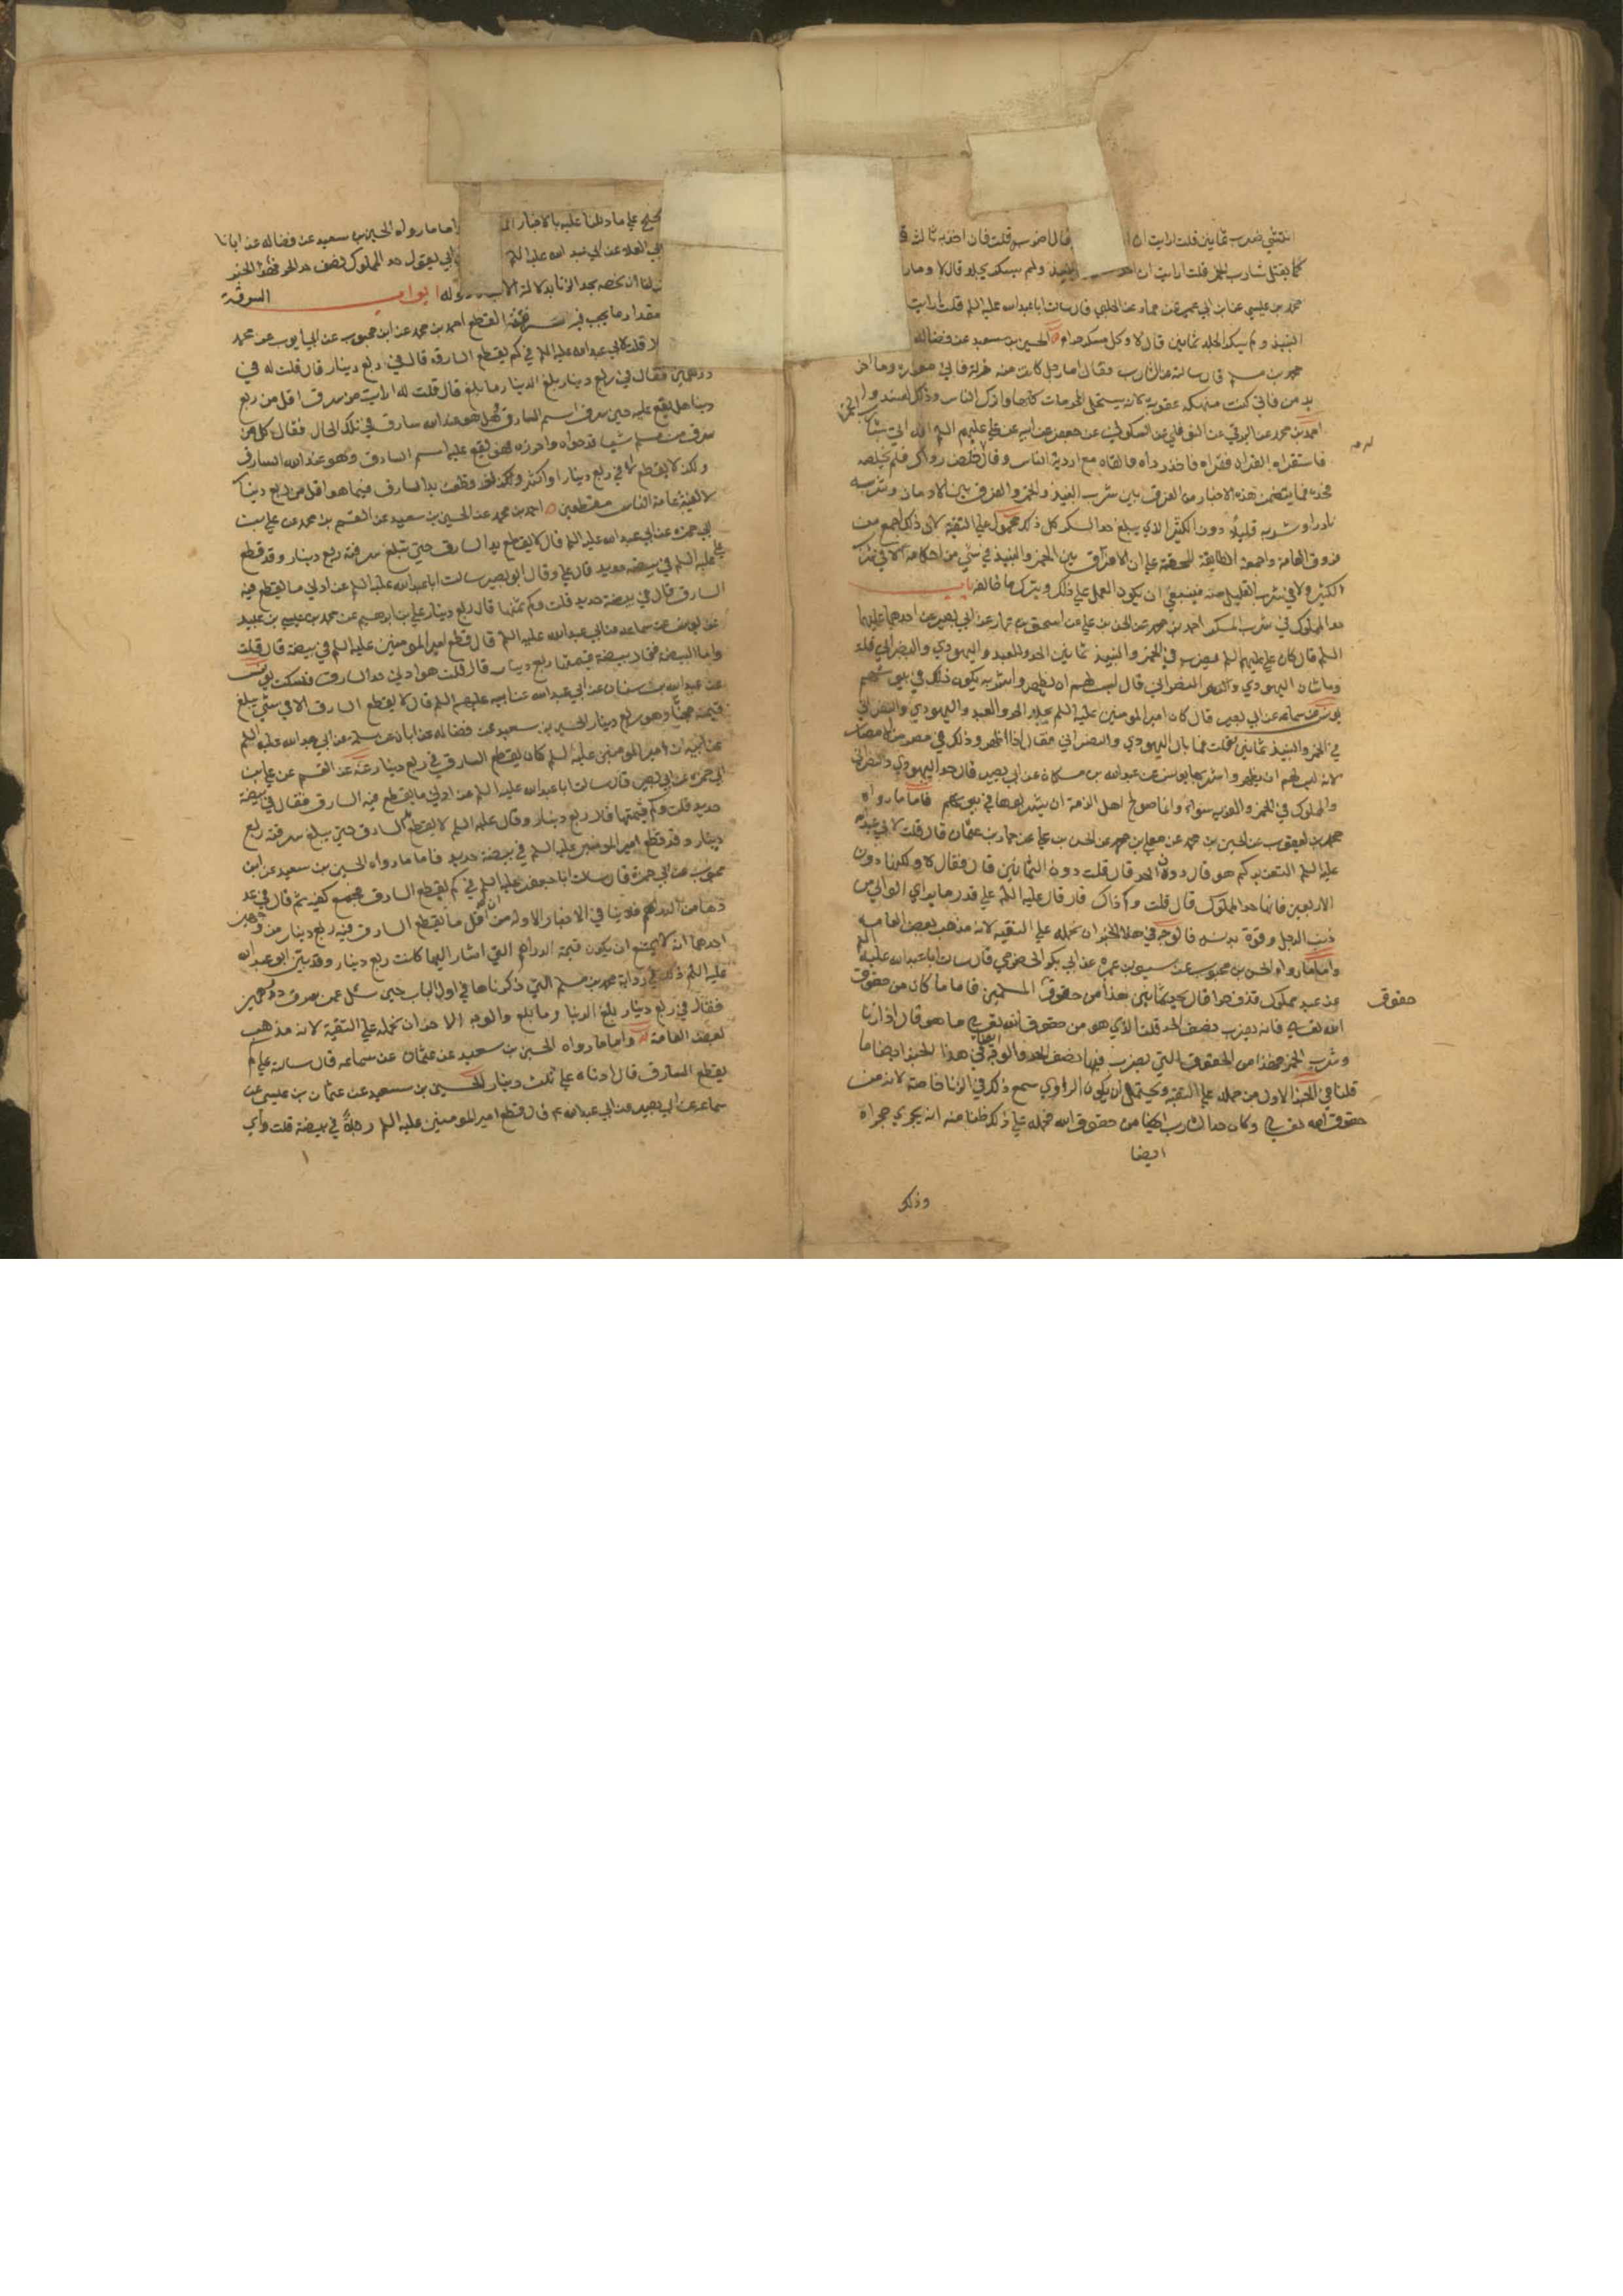 انتشي ضرب ثمانين قلت ارايت ان قال اضربه قلت فان اخذ به ثالثة
كما يقتل شارب الخمر قلت ارايت ان اخذ النبيذ ولم يسكر يجلد قال لا وما
محمد بن عيسي عن ابن ابي عمير عن حماد عن الحلبي قال سالت ابا عبدالله عليه السلم قلت ارايت
النبيذ ولم يسكر ايجلد ثمانين قال لا وكل مسكر حرام الحسين بن سعيد عن فضالة
بن مسلم قال سالته عن الشارب فقال اما رجل كانت منه زلة فاني معزره واما اخر
يدمن فاني كنت منهكه عقوبة لانه يستحل المحرمات كلها ولو ترك الناس وذلك لفسدوا
احمد بن محمد عن البرقي عن النوفلي عن السكوني عن جعفر عن ابيه عن علي عليهم السلم
فاستقراه القران فقراه فاخذ رداه فالقاه مع اردية الناس وقال خلص رداك فلم يخلصه
فحده فما يتضمن هذه الاخبار من الفرق بين شرب النبيذ والخمر والفرق بين الادمان وشربه
نادرا وشربه قليلا دون الكثير الذي يبلغ حد السكر كل ذلك محمول علي التقية لان ذلك اجمع من
فروق العامة واجمعت الطايفة المحقة علي ان لا افتراق بين الخمر والنبيذ في شي من احكامه لا في شرب
الكثير ولا في شرب القليل منه فينبغي ان يكون العمل علي ذلك ويترك ما خالفه باب
حد المملوك في شرب المسكر احمد بن محمد عن الحسن بن علي عن اسحق بن عمار عن ابي بصير عن احدهما عليهما
السلم قال كان علي عليه السلم يضرب في الخمر والنبيذ ثمانين الحر والعبد واليهودي والنصراني قلت
وما شان اليهودي والنصراني قال ليس لهم ان يظهروا شربه يكون ذلك في بيوتهم
يونس عن سماعة عن ابي بصير قال كان امير المومنين عليه السلم يجلد الحر والعبد واليهودي والنصراني
في الخمر والنبيذ ثمانين فقلت فما بال اليهودي والنصراني فقال اذا اظهروا ذلك في مصر من الامصار
لانه ليس لهم ان يظهروا شربها يونس عن عبدالله بن مسكان عن ابي بصير قال حد اليهودي والنصراني
والمملوك في الخمر والفرية سواء وانما صولح اهل الذمة ان يشربوها في بيوتهم فاما ما رواه
محمد بن يعقوب عن الحسين بن محمد عن معلي بن محمد عن الحسن بن علي عن حماد بن عثمان قال قلت لابي عبدالله
عليه السلم التعزير كم هو قال دون الحد قال قلت دون الثمانين قال فقال لا ولكنها دون
الاربعين فانها حد المملوك قال قلت وكم ذاك قال قال عليه السلم علي قدر ما يراي الوالي من
ذنب الرجل وقوة بدنه فالوجه في هذا الخبر ان نحمله علي التقية لانه مذهب بعض العامة
واما ما رواه الحسن بن محبوب عن سيف بن عميرة عن ابي بكر الحضرمي قال سالت ابا عبدالله عليه السلم
عن عبد مملوك قذف حرا قال يجلد ثمانين هذا من حقوق المسلمين فاما ما كان من حقوق
الله تعالي فانه يضرب نصف الحد قلت الذي هو من حقوق الله تعالي ما هو قال اذا زنا
وشرب الخمر فهذا من الحقوق التي يضرب فيها نصف الحد والوجه في هذا الخبر ايضا ما
قلنا في الخبر الاول من حمله علي التقية ويحتمل ان يكون الراوي سمع ذلك في الزنا خاصة لانه من
حقوق الله تعالي وكان حد الشارب ايضا من حقوق الله فحمله علي ذلك ظنا منه انه يجري مجراه
ايضا
حقوق
وذلك
علي ما دللنا عليه بالاخبار اما ما رواه الحسين بن سعيد عن فضالة عن ابان
ابي العلا عن ابي عبد الله عليه السلم ابي يقول حد المملوك نصف حد الحر فهذا الخبر
لنا ان نخصه بحد الزنا بدلالة ابواب السرقة
مقدار ما يجب فيه القطع احمد بن محمد عن ابن محبوب عن ابي ايوب عن محمد
قلت لابي عبدالله عليه السلم في كم يقطع السارق قال في ربع دينار قال قلت له في
درهمين فقال في ربع دينار بلغ الدينار ما بلغ قال قلت له ارايت من سرق اقل من ربع
دينار هل يقع عليه حين سرق اسم السارق وهل هو عند الله سارق في تلك الحال فقال كل من
سرق من مسلم شيا قد حواه واحرزه فهو يقع عليه اسم السارق وهو عند الله السارق
ولكن لا يقطع الا في ربع دينار او اكثر ولو قطعت يد السارق فيما هو اقل من ربع دينار
لالفيت عامة الناس مقطعين احمد بن محمد عن الحسين بن سعيد عن القسم بن محمد عن علي بن
ابي حمزة عن ابي عبدالله عليه السلم قال لا يقطع يد السارق حتي تبلغ سرقته ربع دينار وقد قطع
علي عليه السلم في بيضة حديد قال علي وقال ابو بصير سالت ابا عبدالله عليه السلم عن ادني ما يقطع فيه
السارق قال في بيضة حديد قلت وكم ثمنها قال ربع دينار علي بن ابرهيم عن محمد بن عيسي بن عبيد
عن يونس عن سماعة عن ابي عبدالله عليه السلم قال قطع امير المومنين عليه السلم في بيضة قال قلت
واما البيضة فقال بيضة قيمتها ربع دينار قال قلت هو ادني حد السارق فسكت يونس
عن عبدالله بن سنان عن ابي عبدالله عن ابيه عليهم السلم قال لا يقطع السارق الا في شي يبلغ
قيمته مجنا وهو ربع دينار الحسين بن سعيد عن فضالة عن ابان عن سلمة عن ابي عبدالله عليه السلم
عن ابيه ان امير المومنين عليه السلم كان يقطع السارق في ربع دينار عنه عن القسم عن علي بن
ابي حمزة عن ابي بصير قال سالت ابا عبدالله عليه السلم عن ادني ما يقطع فيه السارق فقال في بيضة
حديد قلت وكم قيمتها قال ربع دينار وقال عليه السلم لا يقطع السارق حتي يبلغ سرقته ربع
دينار وقد قطع امير المومنين عليه السلم في بيضة حديد فاما ما رواه الحسين بن سعيد عن ابن
محبوب عن ابي حمزة قال سالت ابا جعفر عليه السلم في كم يقطع السارق فجمع كفيه ثم قال في عد
دها من الدراهم فلا ينافي الاخبار الاولة من ان اقل ما يقطع السارق فيه ربع دينار من وجهين
احدهما انه لا يمتنع ان يكون قيمة الدراهم التي اشار اليها كانت ربع دينار وقد بين ابو عبدالله
عليه السلم ذلك في رواية محمد بن مسلم التي ذكرناها في اول الباب حين سئل عمن سرق درهمين
فقال في ربع دينار بلغ الدينار ما بلغ والوجه الاخر ان نحمله علي التقية لانه مذهب
لبعض العامة واما ما رواه الحسين بن سعيد عن عثمان عن سماعة قال سالته علي كم
يقطع السارق قال ادناه علي ثلث دينار الحسين بن سعيد عن عثمان بن عيسي عن
سماعة عن ابي بصير عن ابي عبدالله ع قال قطع امير المومنين عليه السلم رجلا في بيضة قلت واي